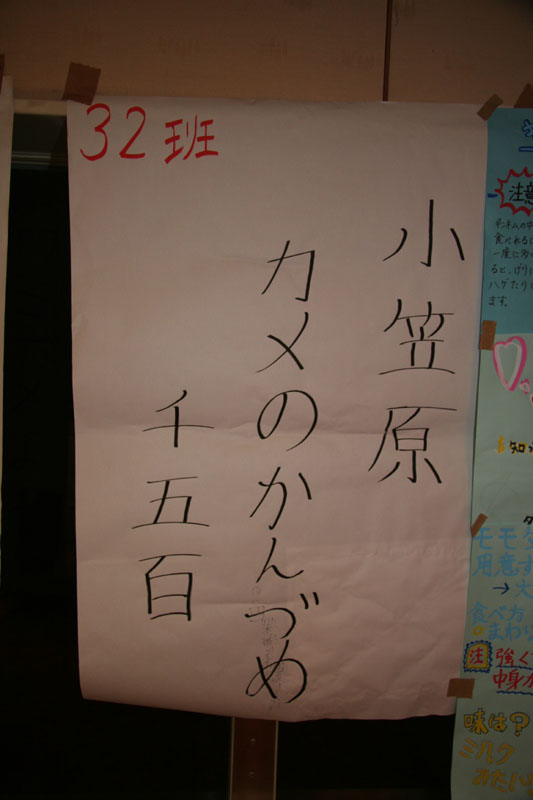 32班
小笠原
カメのかんづめ
千五百
注意
食べれる
一度に
ます。
知
モモ
用意す
→大
食べ方
まわり
注 強く
中身か
味は?
ミルク
みたい